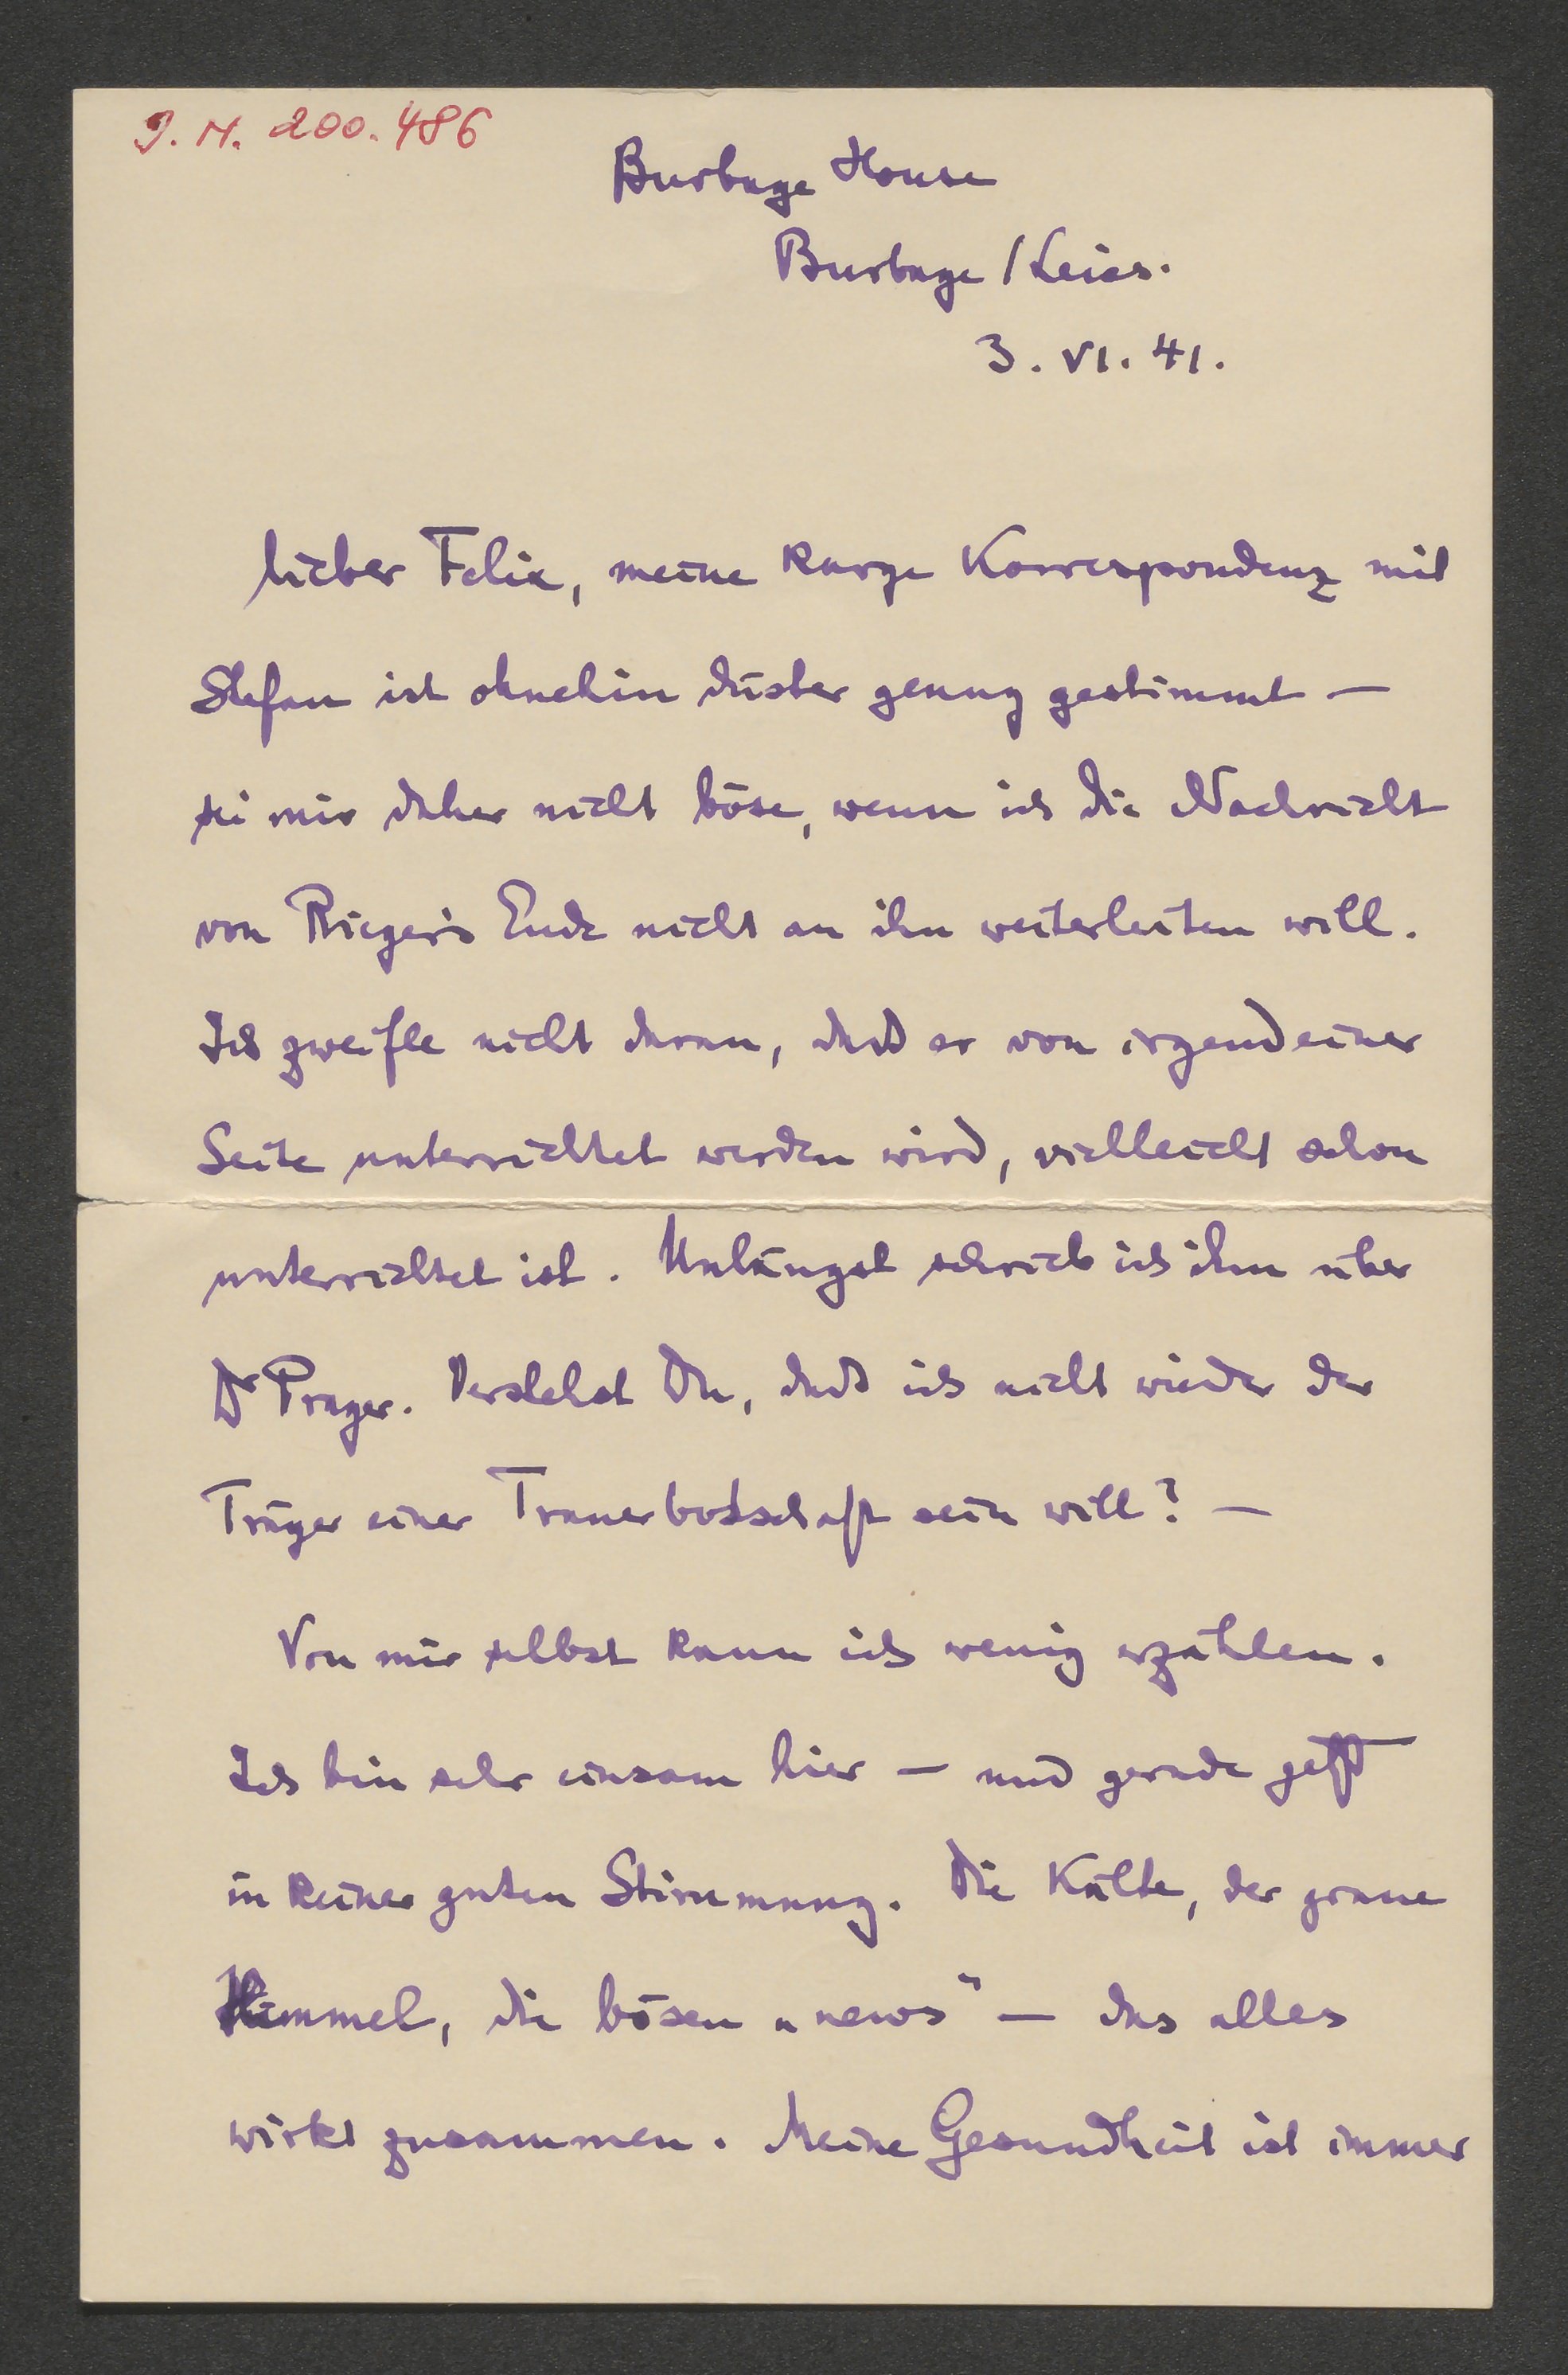 J. N. 200.486
Burbage House
Burbage / Leics.
3. VI. 41.
Lieber Felix, meine karge Korrespondenz mit
Stefan ist ohnehin düster genug gestimmt —
sei mir daher nicht böse, wenn ich die Nachricht
von Rieger's Ende nicht an ihn weiterleiten will.
Ich zweifle nicht daran, daß er von irgendeiner
Seite unterrichtet werden wird, vielleicht schon
unterrichtet ist. Unlängst schrieb ich ihm über
Dr Prager. Verstehst Du, daß ich nicht wieder der
Träger einer Trauerbotschaft sein will? —
Von mir selbst kann ich wenig erzählen.
Ich bin sehr einsam hier — und gerade jetzt
in keiner guten Stimmung. Die Kälte, der graue
Himmel, die bösen „news“ — das alles
wirkt zusammen. Meine Gesundheit ist immer